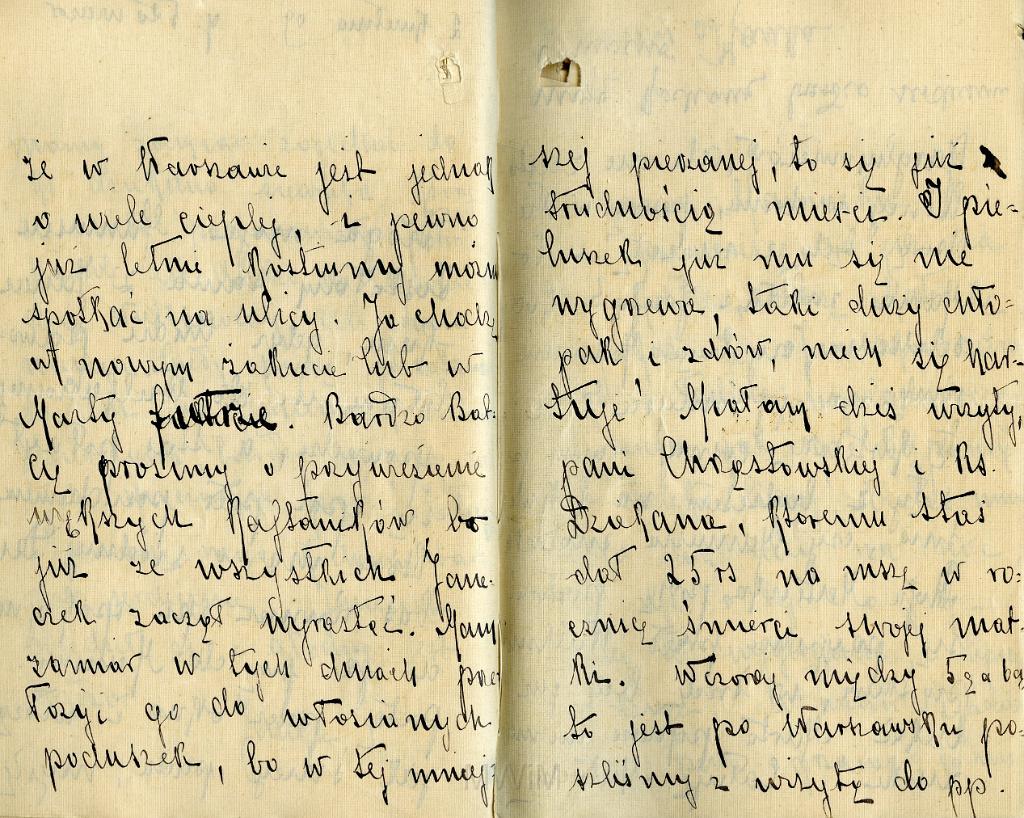 że w Warszawie jest jednak
o wiele cieplej, z pewno
już letnie kostiumy można
spotkać na ulicy. Ja chodzę
w nowym żakiecie lub w
Marty futrze. Bardzo Bab-
cię prosimy o przywiezienie
większych kaftaników bo
już ze wszystkich Jane-
czek zaczął wyrastać. Mamy
zamiar w tych dniach prze
łożyć go do włosianych
poduszek, bo w tej mniej
szej pierzanej, to się już z
trudnością mieści. I pie-
luszek już mu się nie
wygrzewa, taki duży chło-
pak i zdrów, niech się har-
tuje! Miałam dziś wizyty,
pani Chrzęstowskiej i ks.
Dziekana, któremu Staś
dał 25 rs na mszę w ro-
cznicę śmierci swojej mat-
ki. Wczoraj między 5tą a 6tą
to jest po Warszawsku po-
szliśmy z wizytą do pp.